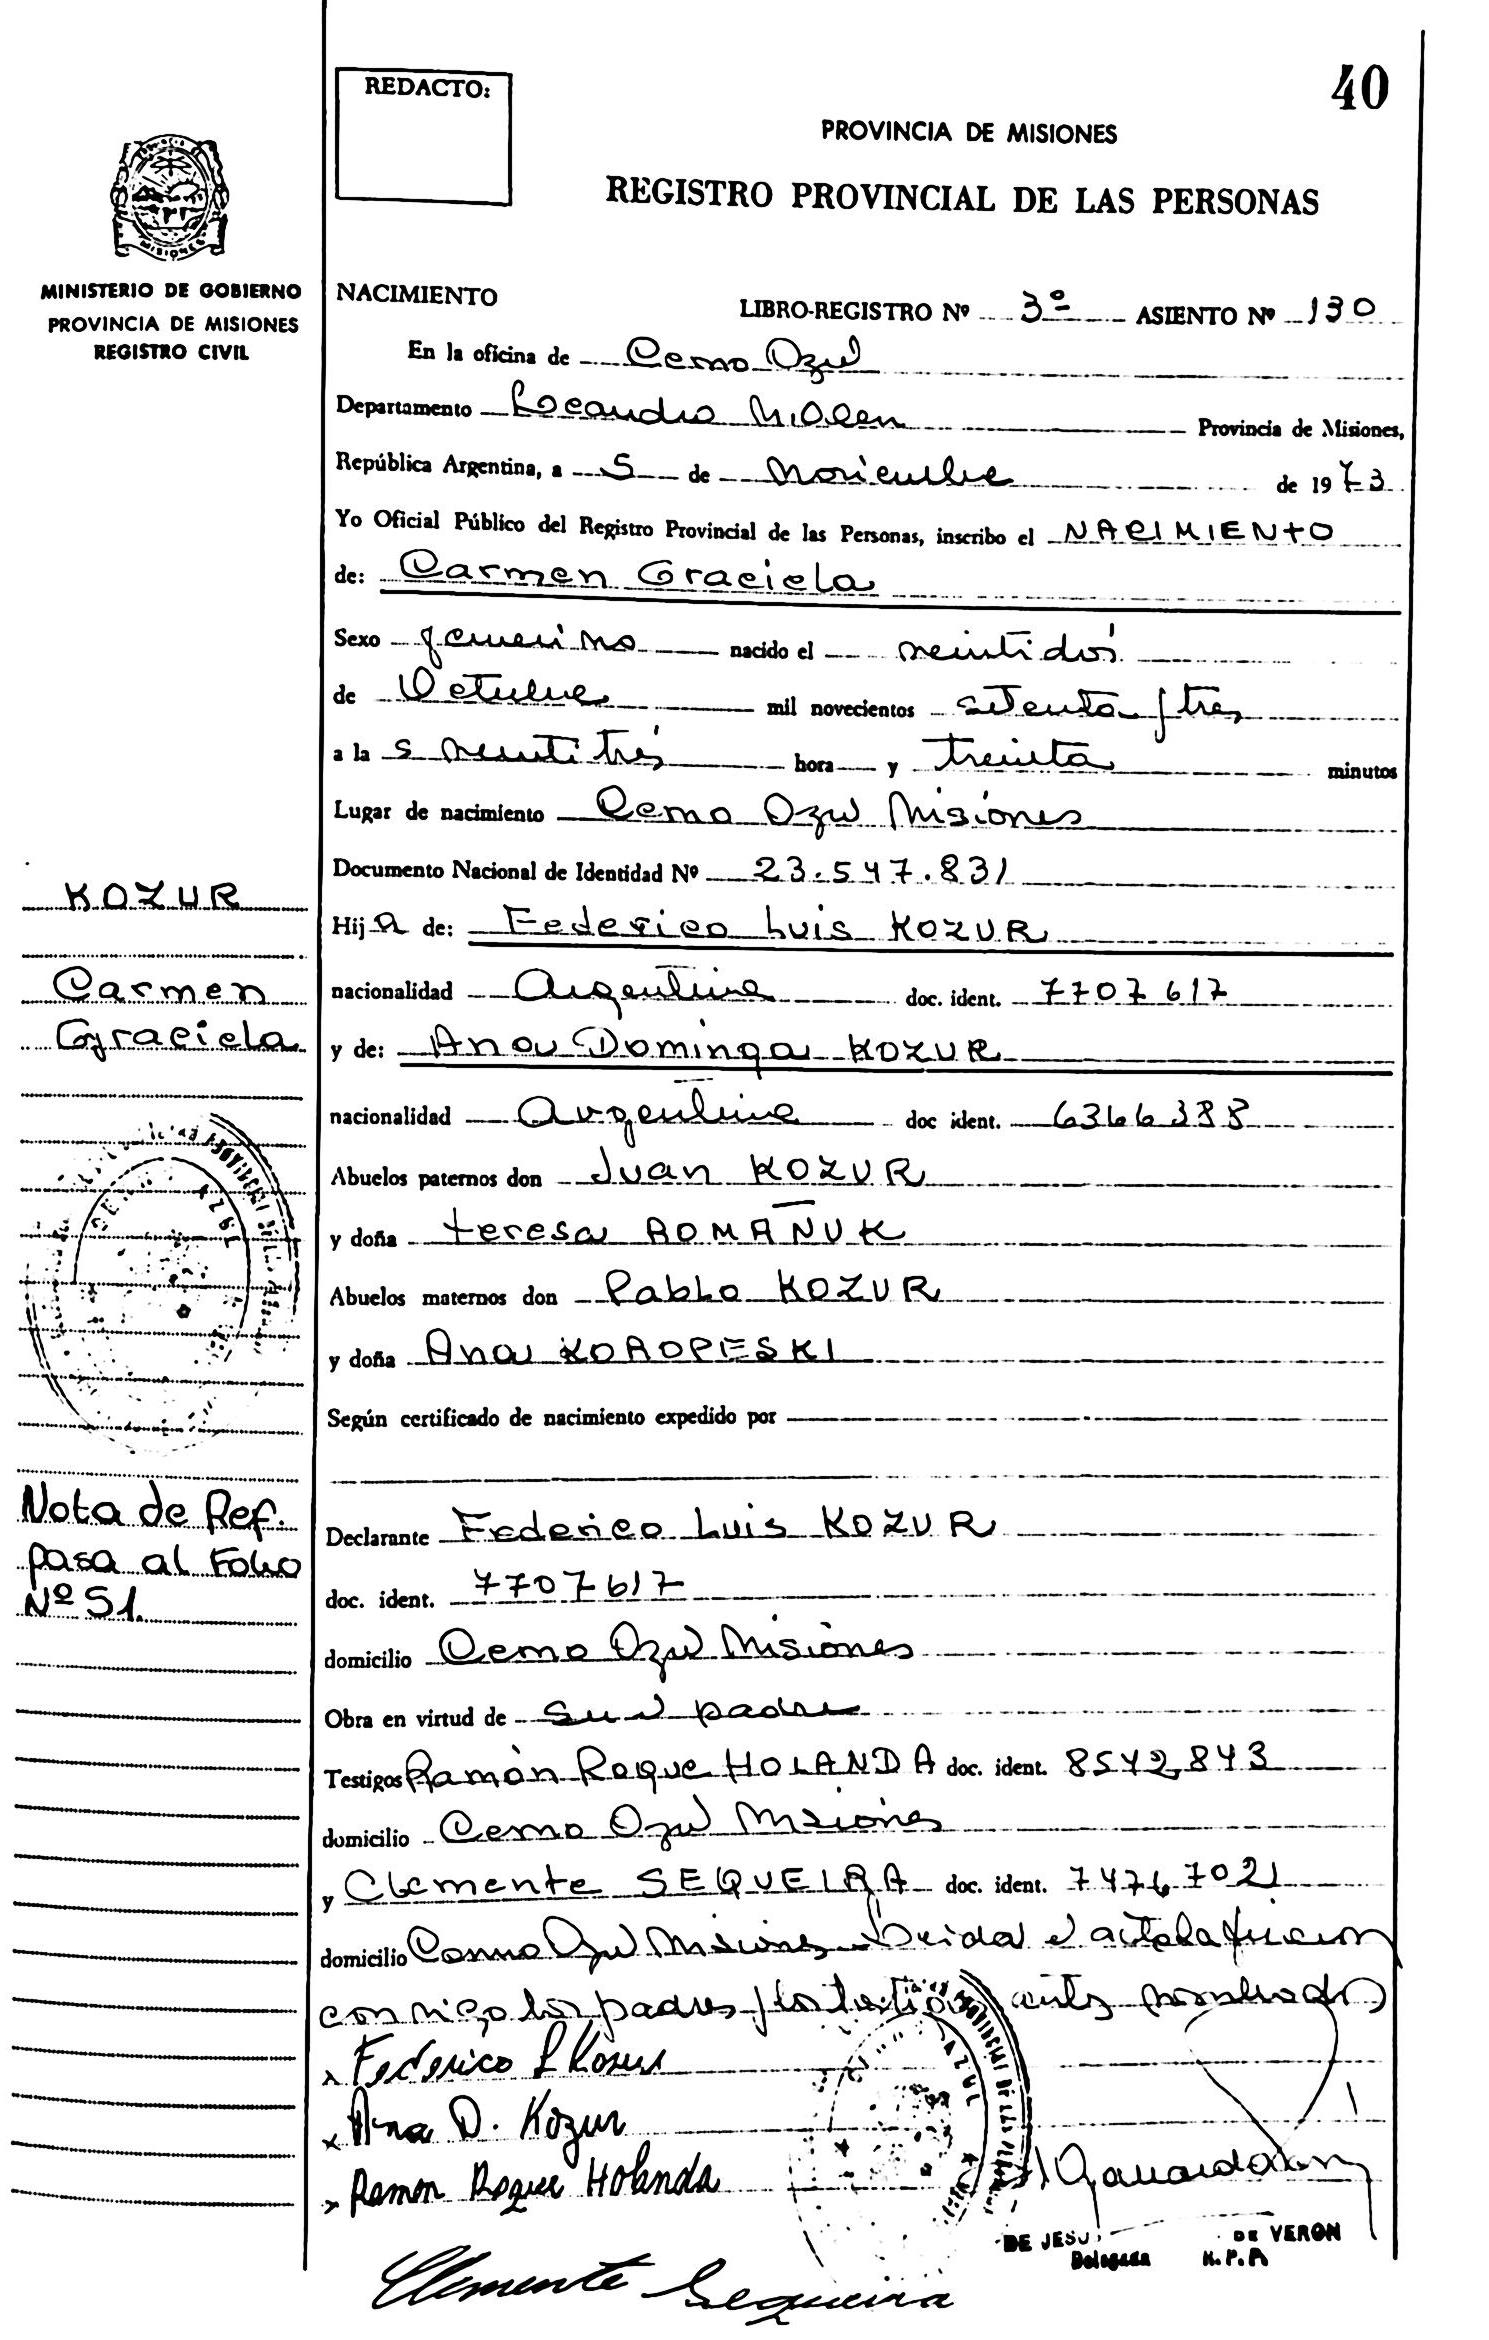 40
REDACTO:
PROVINCIA DE MISIONES
REGISTRO PROVINCIAL DE LAS PERSONAS
MISIONES
MINISTERIO DE GOBIERNO
PROVINCIA DE MISIONES
REGISTRO CIVIL
NACIMIENTO
LIBRO-REGISTRO Nº 3º ASIENTO Nº 130
En la oficina de Cerro Azul
Departamento Leandro N. Alem Provincia de Misiones,
República Argentina, a 5 de Noviembre de 1973
Yo Oficial Público del Registro Provincial de las Personas, inscribo el NACIMIENTO
de: Carmen Graciela
Sexo femenino nacido el veintidós
de Octubre mil novecientos setenta y tres
a las veintitrés hora y treinta minutos
Lugar de nacimiento Cerro Azul Misiones
Documento Nacional de Identidad Nº 23.547.831
KOZUR
Hija de: Federico Luis KOZUR
Carmen
Graciela
nacionalidad Argentina doc. ident. 7707617
y de: Ana Dominga KOZUR
nacionalidad Argentina doc ident. 6366388
Abuelos paternos don Juan KOZUR
y doña teresa ROMAÑUK
Abuelos maternos don Pablo KOZUR
y doña Ana KOROPESKI
Según certificado de nacimiento expedido por
Nota de Ref.
pasa al Folio
Nº 51.
Declarante Federico Luis KOZUR
doc. ident. 7707617
domicilio Cerro Azul Misiones
Obra en virtud de su padre
Testigos Ramón Roque HOLANDA doc. ident. 8542843
domicilio Cerro Azul Misiones
y Clemente SEQUEIRA doc. ident. 7476702
domicilio Cerro Azul Misiones Leida el acta la firman
conmigo los padres y los testigos antes nombrados
x Federico L Kozur
x Ana D. Kozur
x Ramon Roque Holanda
DE JESU DE VERON
Delegada R.P.P.
Clemente Sequeira